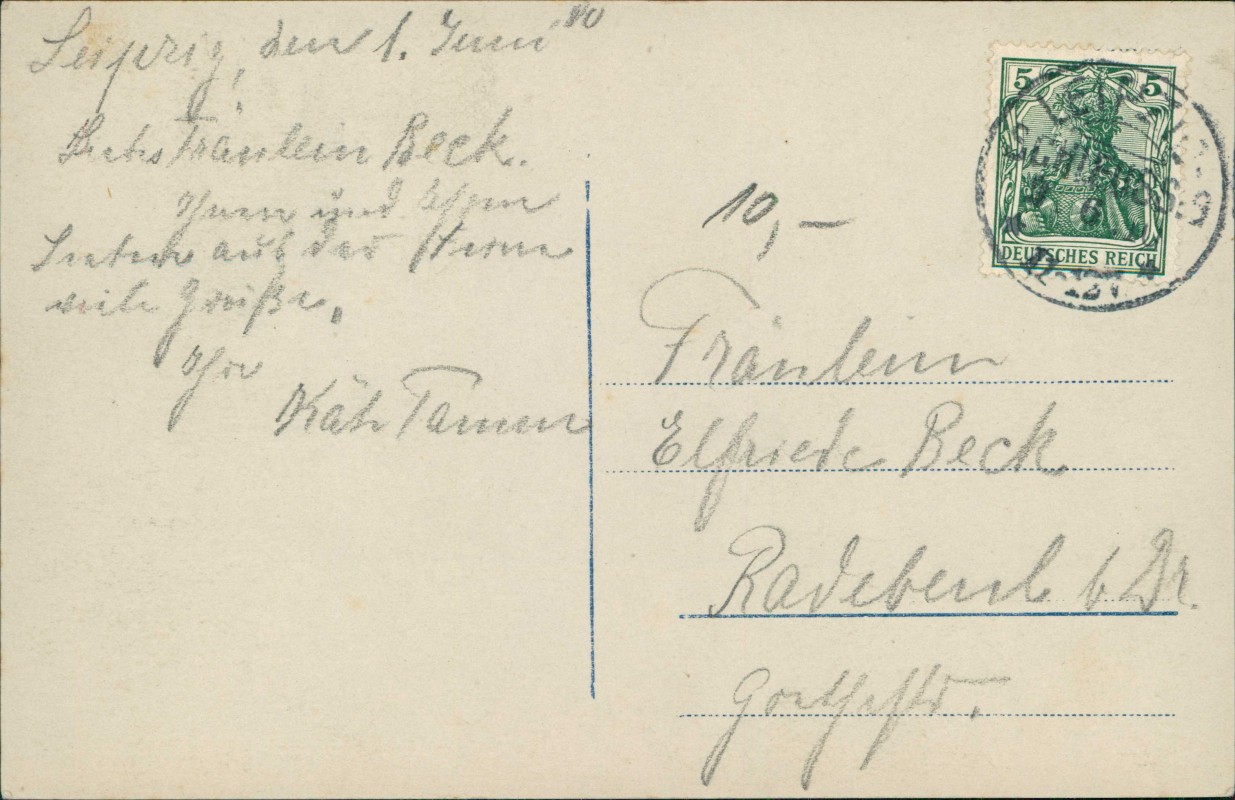 Leipzig, den 1. Juni 10
Liebes Fräulein Beck.
Ihnen und Ihren
Lieben aus der Ferne
viele Grüße,
Ihre
Käte Tamm
10,-
5 5
DEUTSCHES REICH
LEIPZIG-
6
Fräulein
Elfriede Beck
Radebeul b Dr.
Goethestr.